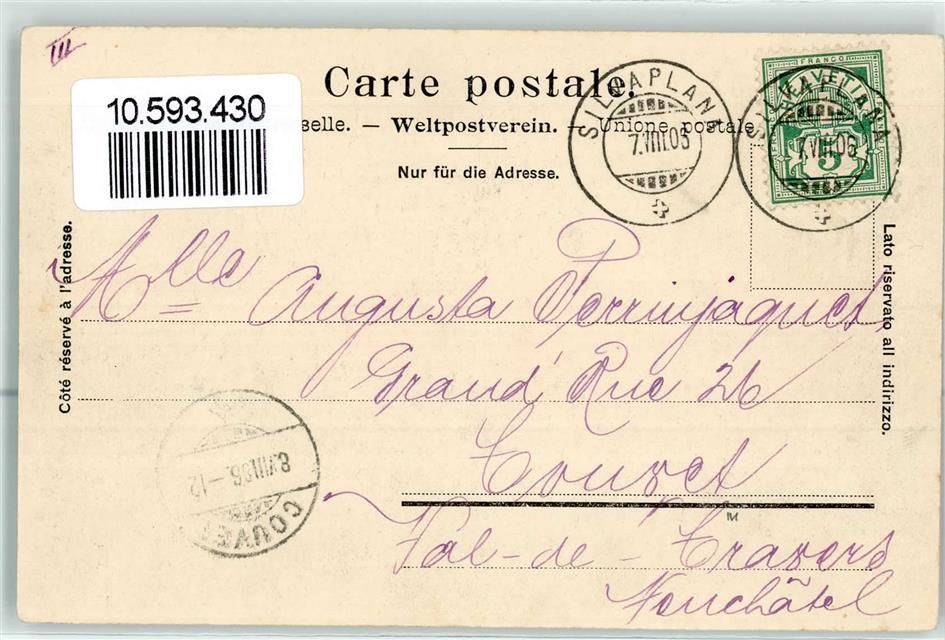 III
Carte postale.
10.593.430
selle. — Weltpostverein. — Unione postale
Nur für die Adresse.
SILVAPLANA
7.VIII.06
SILVAPLANA
7.VIII.06
FRANCO
HELVETIA
5
Côté réservé à l'adresse.
Lato riservato all indirizzo.
Mlle Augusta Perrinjaquet
Grand'Rue 26
Couvet
Val-de-Travers
Neuchâtel
8.VIII.06.-12
COUVET
TM